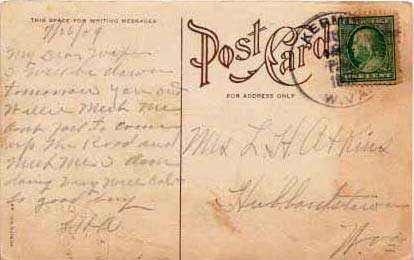 THIS SPACE FOR WRITING MESSAGES
7/26/09
My Dear Wife
I will be down
tomorrow you and
Willie Meet me
dont fail to come
up the Road and
Meet Me I am
doing Very well
so good by
LHA
Post Card
FOR ADDRESS ONLY
KER
W.VA.
ONE CENT
Mrs L H Atkins
Hubbardstown
W.Va